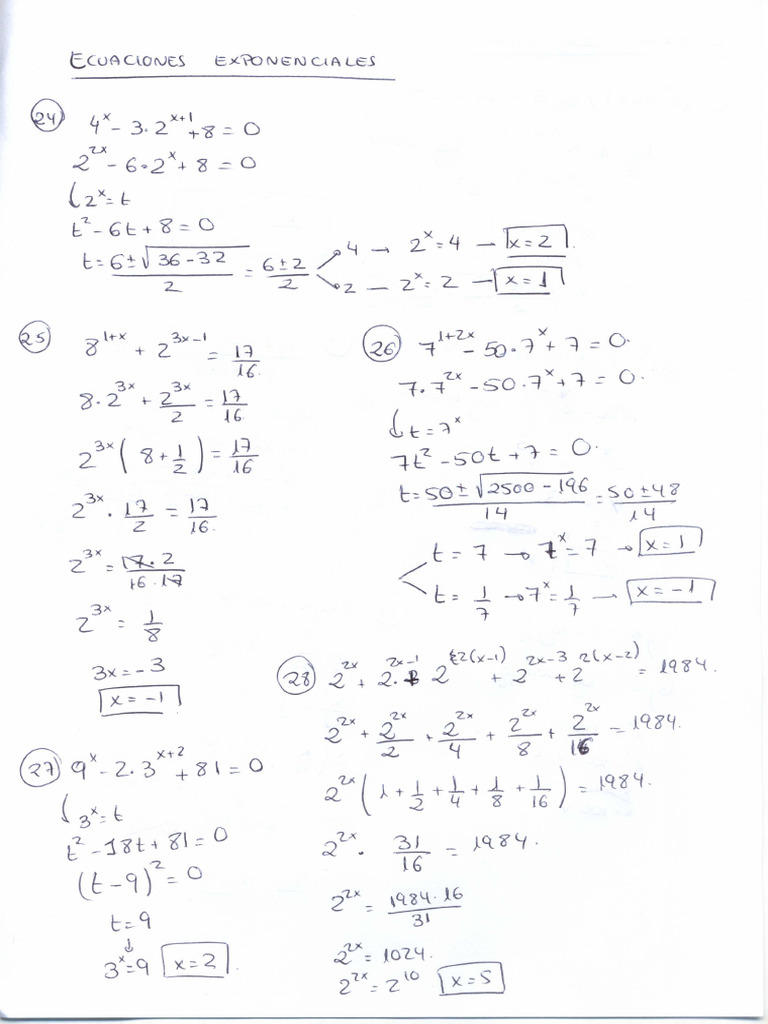 ECUACIONES EXPONENCIALES
24 4^x - 3·2^(x+1) + 8 = 0
2^(2x) - 6·2^x + 8 = 0
2^x = t
t² - 6t + 8 = 0
t = (6 ± √(36 - 32))/2 = (6 ± 2)/2
4 → 2^x = 4 → x = 2
2 → 2^x = 2 → x = 1
25 8^(1+x) + 2^(3x-1) = 17/16
8·2^(3x) + 2^(3x)/2 = 17/16
2^(3x) (8 + 1/2) = 17/16
2^(3x) · 17/2 = 17/16
2^(3x) = 17·2/16·17
2^(3x) = 1/8
3x = -3
x = -1
26 7^(1+2x) - 50·7^x + 7 = 0
7·7^(2x) - 50·7^x + 7 = 0
t = 7^x
7t² - 50t + 7 = 0
t = (50 ± √(2500 - 196))/14 = (50 ± 48)/14
t = 7 → 7^x = 7 → x = 1
t = 1/7 → 7^x = 1/7 → x = -1
27 9^x - 2·3^(x+2) + 81 = 0
3^x = t
t² - 18t + 81 = 0
(t - 9)² = 0
t = 9
3^x = 9 x = 2
28 2^(2x) + 2^(2x-1) 2^(2(x-1)) + 2^(2x-3) + 2^(2(x-2)) = 1984.
2^(2x) + 2^(2x)/2 + 2^(2x)/4 + 2^(2x)/8 + 2^(2x)/16 = 1984.
2^(2x) (1 + 1/2 + 1/4 + 1/8 + 1/16) = 1984.
2^(2x) · 31/16 = 1984.
2^(2x) = 1984·16/31
2^(2x) = 1024.
2^(2x) = 2^10 x = 5